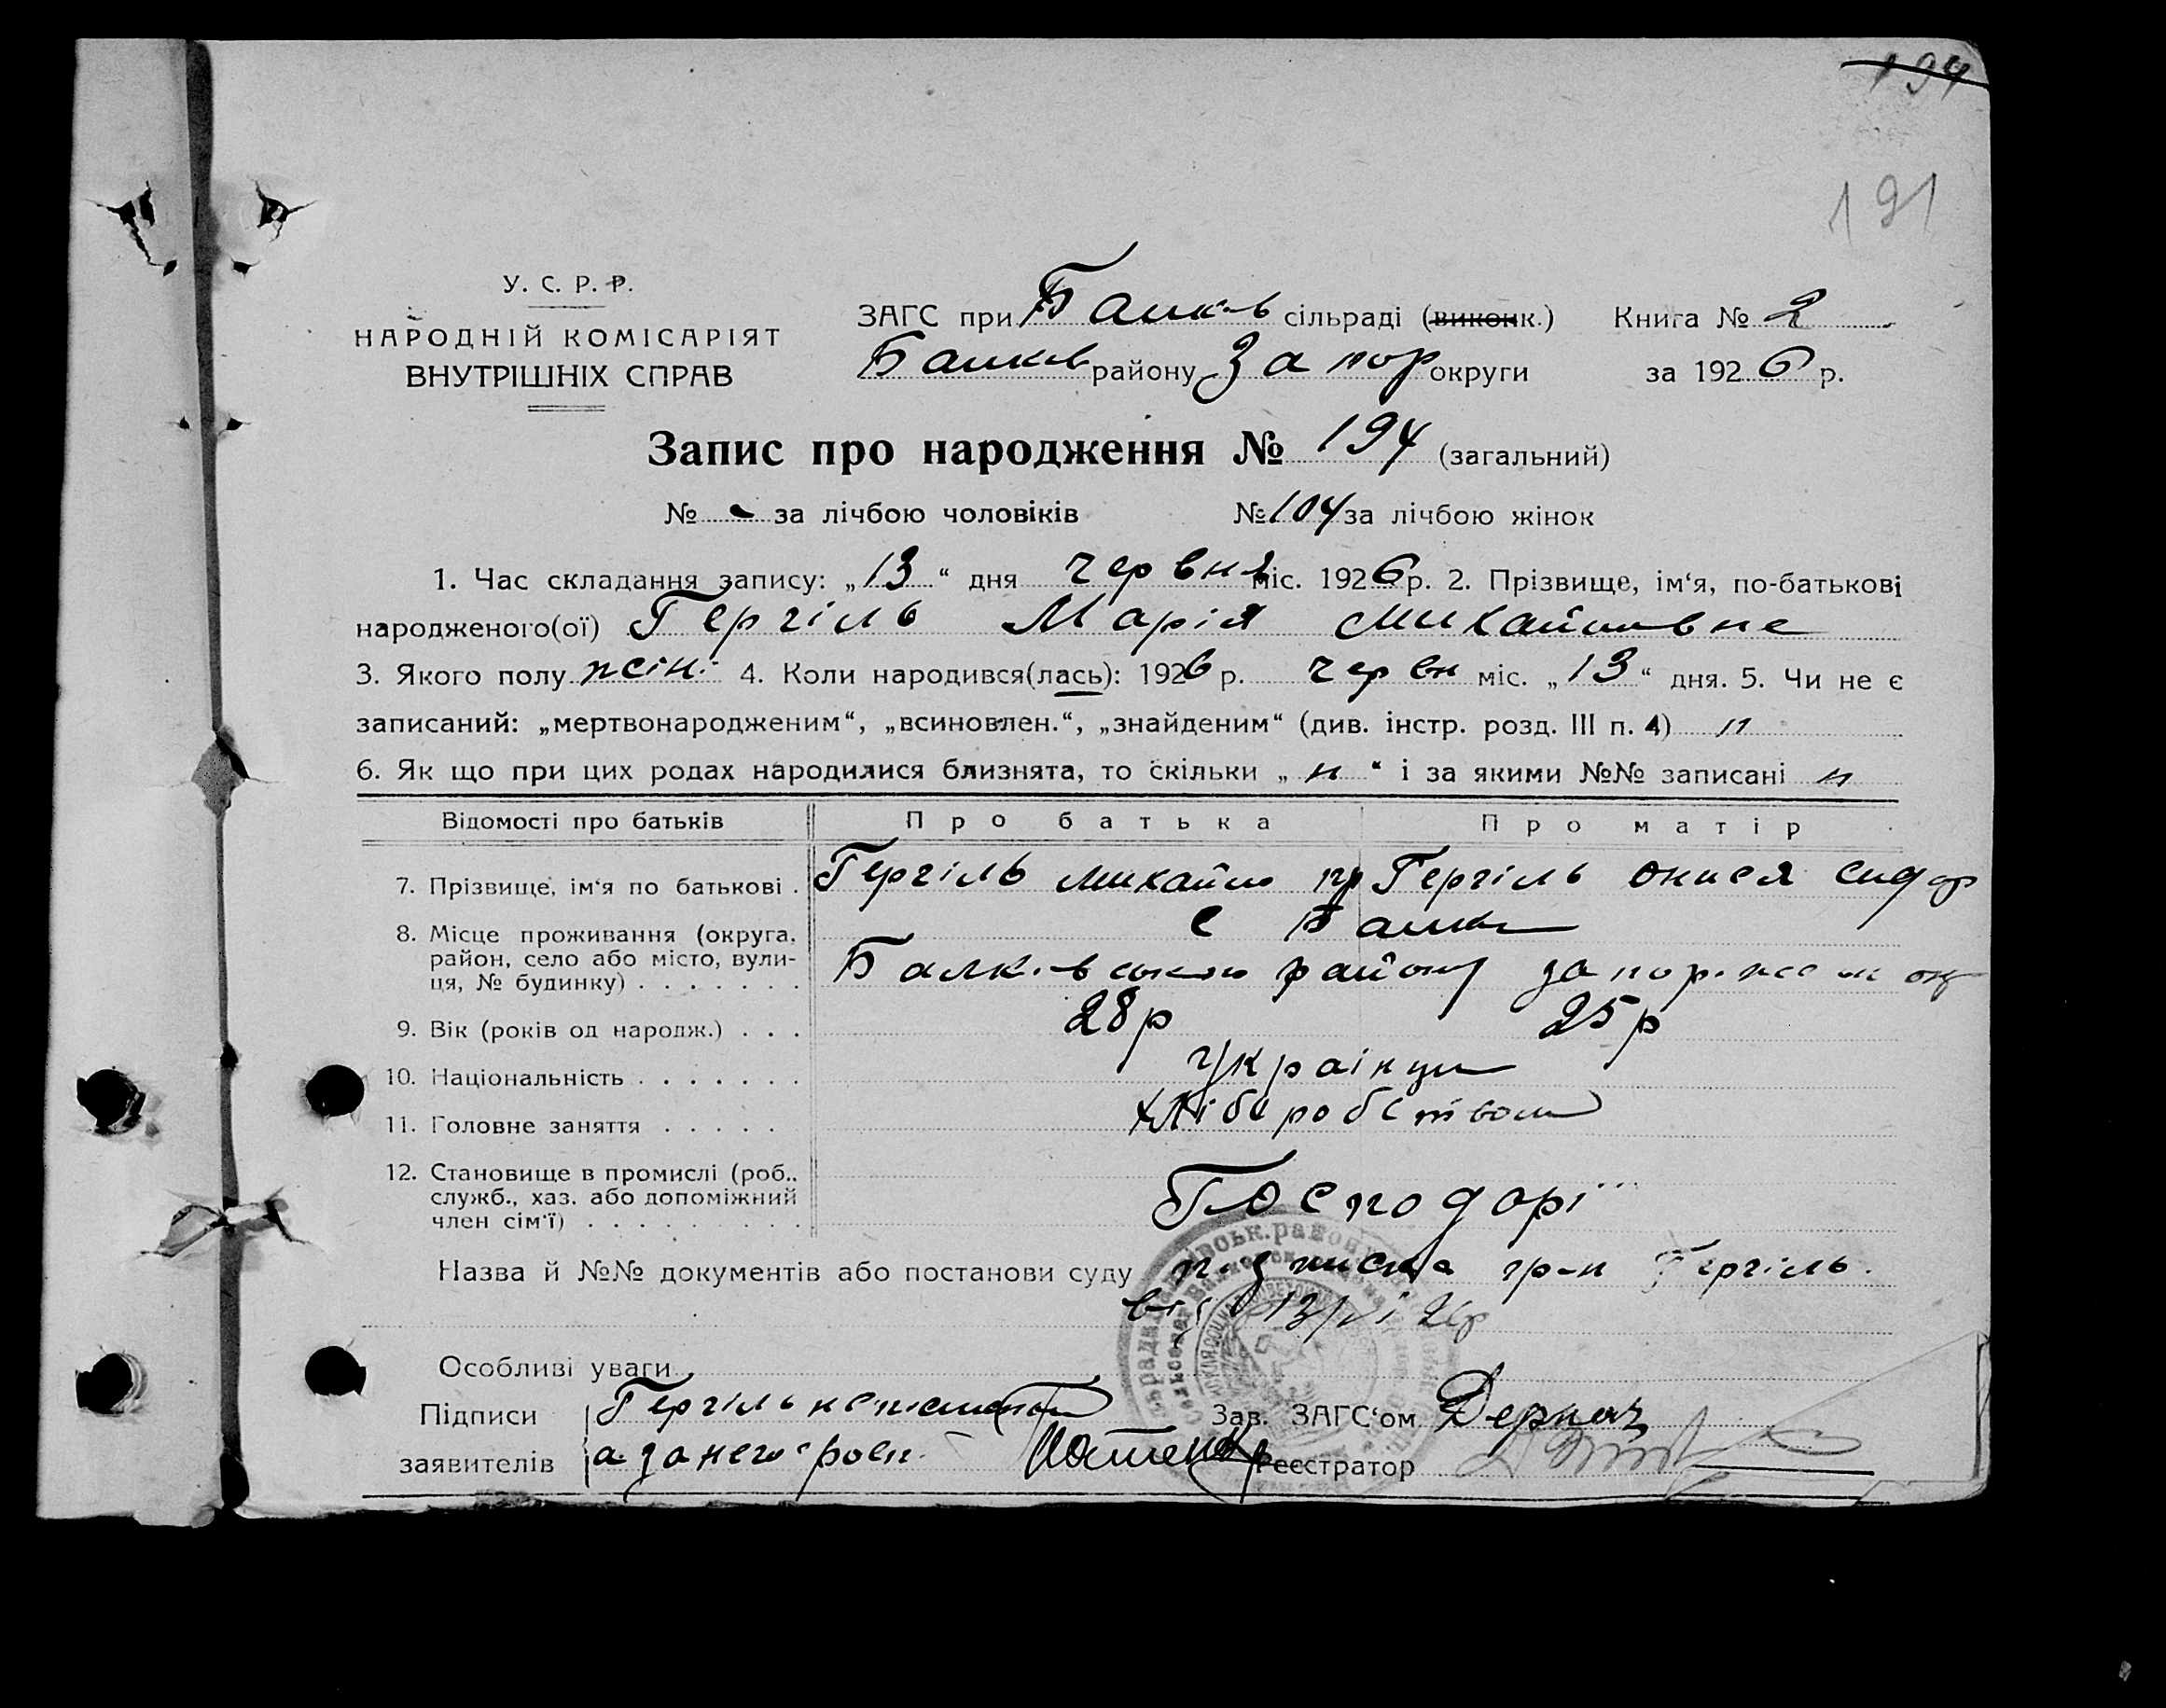 194
191
У. С. Р. Р.
НАРОДНІЙ КОМІСАРІЯТ
ВНУТРІШНІХ СПРАВ
ЗАГС при Балків сільраді (виконк.) Книга № 2
Балків району Запор округи за 1926 р.
Запис про народження № 194 (загальний)
№ - за лічбою чоловіків № 104 за лічбою жінок
1. Час складання запису: „13“ дня червня міс. 1926 р. 2. Прізвище, ім‘я, по-батькові
народженого(ої) Гергіль Марія Михайловне
3. Якого полу жін. 4. Коли народився(лась): 1926 р. червн міс. „13“ дня. 5. Чи не є
записаний: „мертвонародженим“, „всиновлен.“, „знайденим“ (див. інстр. розд. III п. 4) н
6. Як що при цих родах народилися близнята, то скільки „н“ і за якими №№ записані н
Відомості про батьків Про батька Про матір
7. Прізвище, ім‘я по батькові . Гергіль Михайло Гергіль Онися Сидор
8. Місце проживання (округа, с Балки
район, село або місто, вули- Балківського району Запоріжськ окр
ця, № будинку) . . . . . . .
9. Вік (років од народж.) . . . 28р 25р
10. Національність . . . . . . . Українци
11. Головне заняття . . . . . Хліборобством
12. Становище в промислі (роб.,
служб., хаз. або допоміжний Господарі
член сім‘ї) . . . . . . . . .
Назва й №№ документів або постанови суду підписка гр-н Гергіль.
від 13/VI 26р
Особливі уваги
Підписи Гергіль Зав. ЗАГС‘ом Деркач
заявителів а за него росп. Реєстратор